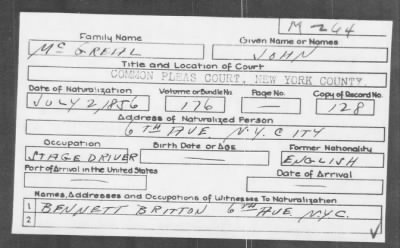 M 264
Family Name Given Name or Names
McGREIHL JOHN
Title and Location of Court
COMMON PLEAS COURT, NEW YORK COUNTY
Date of Naturalization Volume or Bundle No. Page No. Copy of Record No.
JULY 2/1856 176 — 128
Address of Naturalized Person
6TH AVE. N.Y. CITY
Occupation Birth Date or Age Former Nationality
STAGE DRIVER — ENGLISH
Port of Arrival in the United States Date of Arrival
— —
Names, Addresses and Occupations of Witnesses To Naturalization
1 BENNETT BRITTON 6TH AVE NYC
2